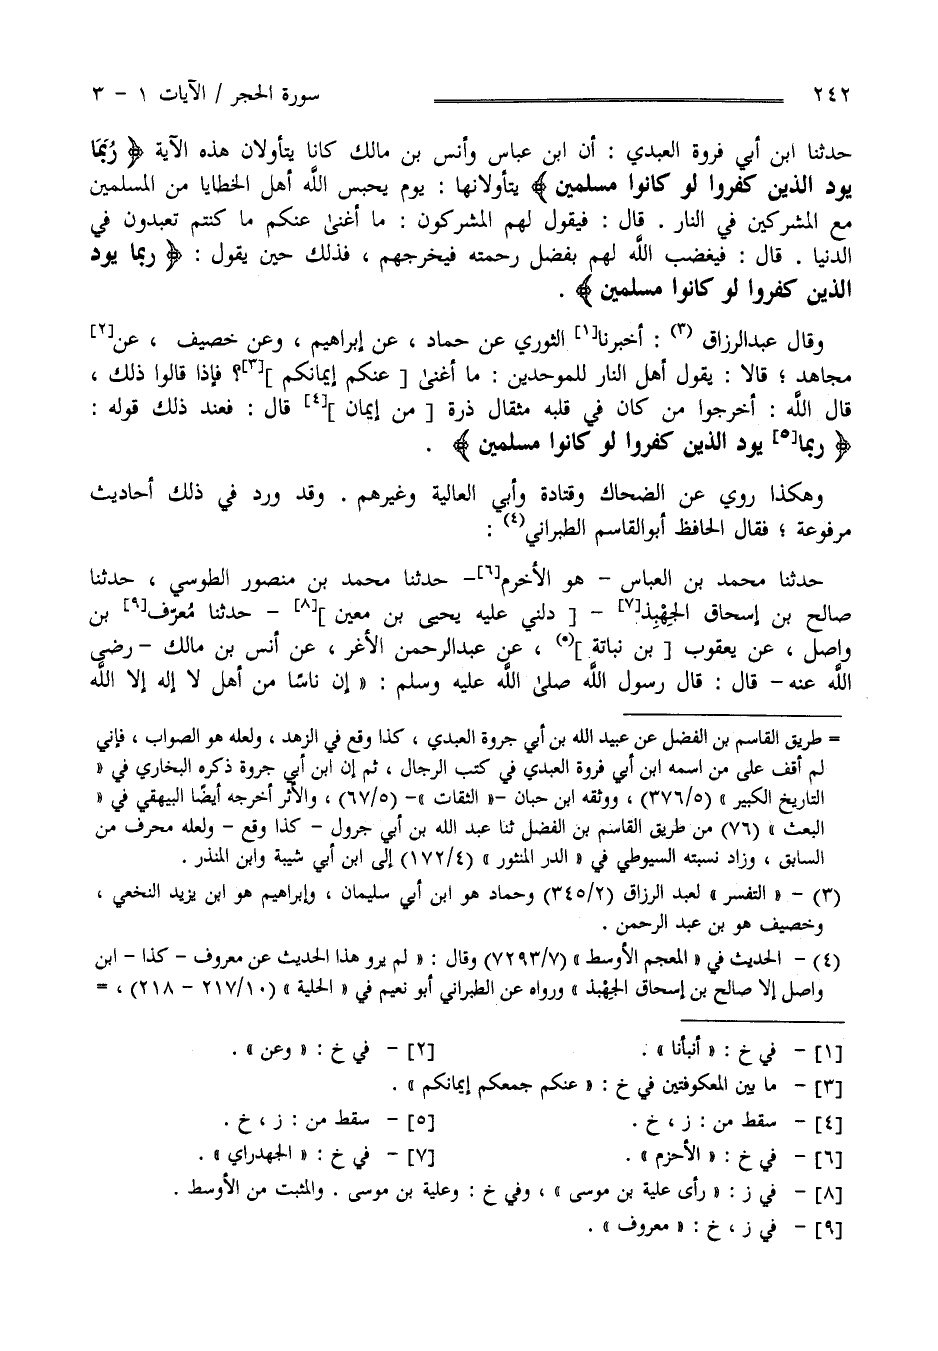 ٢٤٢ سورة الحجر / الآيات ١ - ٣
حدثنا ابن أبي فروة العبدي : أن ابن عباس وأنس بن مالك كانا يتأولان هذه الآية ﴿ رُبَمَا
يود الذين كفروا لو كانوا مسلمين ﴾ يتأولانها : يوم يحبس الله أهل الخطايا من المسلمين
مع المشركين في النار . قال : فيقول لهم المشركون : ما أغنىٰ عنكم ما كنتم تعبدون في
الدنيا . قال : فيغضب الله لهم بفضل رحمته فيخرجهم ، فذلك حين يقول : ﴿ ربما يود
الذين كفروا لو كانوا مسلمين ﴾ .
وقال عبدالرزاق (٣) : أخبرنا[١] الثوري عن حماد ، عن إبراهيم ، وعن خصيف ، عن[٢]
مجاهد ؛ قالا : يقول أهل النار للموحدين : ما أغنىٰ [ عنكم إيمانكم ][٣]؟ فإذا قالوا ذلك ،
قال الله : أخرجوا من كان في قلبه مثقال ذرة [ من إيمان ][٤] قال : فعند ذلك قوله :
﴿ ربما[٥] يود الذين كفروا لو كانوا مسلمين ﴾ .
وهكذا روي عن الضحاك وقتادة وأبي العالية وغيرهم . وقد ورد في ذلك أحاديث
مرفوعة ؛ فقال الحافظ أبوالقاسم الطبراني(٤) :
حدثنا محمد بن العباس - هو الأخرم[٦]- حدثنا محمد بن منصور الطوسي ، حدثنا
صالح بن إسحاق الجِهْبِذ[٧] - [ دلني عليه يحيى بن معين ][٨] - حدثنا مُعرّف[٩] بن
واصل ، عن يعقوب [ بن نباتة ](٥) ، عن عبدالرحمن الأغر ، عن أنس بن مالك - رضي
الله عنه - قال : قال رسول الله صلىٰ الله عليه وسلم : « إن ناسًا من أهل لا إله إلا الله
= طريق القاسم بن الفضل عن عبيد الله بن أبي جروة العبدي ، كذا وقع في الزهد ، ولعله هو الصواب ، فإني
لم أقف على من اسمه ابن أبي فروة العبدي في كتب الرجال ، ثم إن ابن أبي جروة ذكره البخاري في «
التاريخ الكبير » (٣٧٦/٥) ، ووثقه ابن حبان -« الثقات »- (٦٧/٥) ، والأثر أخرجه أيضًا البيهقي في «
البعث » (٧٦) من طريق القاسم بن الفضل ثنا عبد الله بن أبي جرول - كذا وقع - ولعله محرف من
السابق ، وزاد نسبته السيوطي في « الدر المنثور » (١٧٢/٤) إلى ابن أبي شيبة وابن المنذر .
(٣) - « التفسر » لعبد الرزاق (٣٤٥/٢) وحماد هو ابن أبي سليمان ، وإبراهيم هو ابن يزيد النخعي ،
وخصيف هو بن عبد الرحمن .
(٤) - الحديث في « المعجم الأوسط » (٧٢٩٣/٧) وقال : « لم يرو هذا الحديث عن معروف - كذا - ابن
واصل إلا صالح بن إسحاق الجهْبذ » ورواه عن الطبراني أبو نعيم في « الحلية » (٢١٧/١٠ - ٢١٨) ، =
[١] - في خ : « أنبأنا » . [٢] - في خ : « وعن » .
[٣] - ما بين المعكوفتين في خ : « عنكم جمعكم إيمانكم » .
[٤] - سقط من : ز ، خ . [٥] - سقط من : ز ، خ .
[٦] - في خ : « الأحزم » . [٧] - في خ : « الجهدراي » .
[٨] - في ز : « رأى علية بن موسى » ، وفي خ : وعلية بن موسى . والمثبت من الأوسط .
[٩] - في ز ، خ : « معروف » .